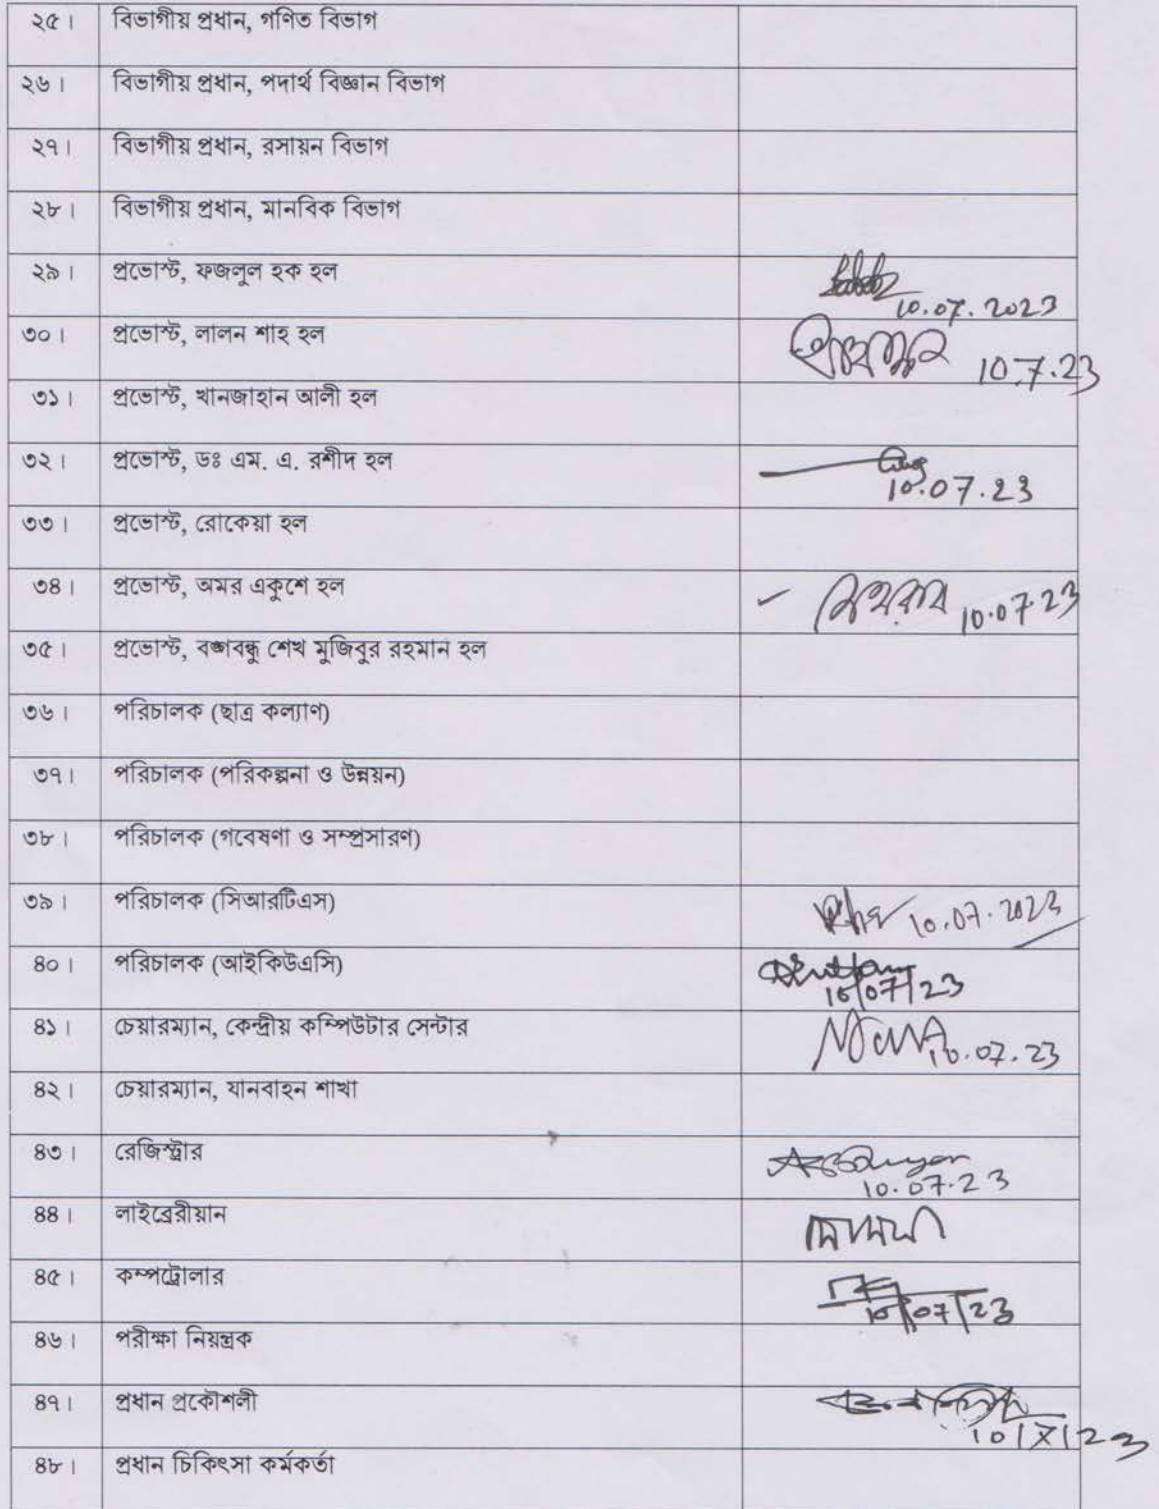 ২৫। বিভাগীয় প্রধান, গণিত বিভাগ
২৬। বিভাগীয় প্রধান, পদার্থ বিজ্ঞান বিভাগ
২৭। বিভাগীয় প্রধান, রসায়ন বিভাগ
২৮। বিভাগীয় প্রধান, মানবিক বিভাগ
২৯। প্রভোস্ট, ফজলুল হক হল
10.07.2023
৩০। প্রভোস্ট, লালন শাহ হল
10.7.23
৩১। প্রভোস্ট, খানজাহান আলী হল
৩২। প্রভোস্ট, ডঃ এম. এ. রশীদ হল
10.07.23
৩৩। প্রভোস্ট, রোকেয়া হল
৩৪। প্রভোস্ট, অমর একুশে হল
10.07.23
৩৫। প্রভোস্ট, বঙ্গবন্ধু শেখ মুজিবুর রহমান হল
৩৬। পরিচালক (ছাত্র কল্যাণ)
৩৭। পরিচালক (পরিকল্পনা ও উন্নয়ন)
৩৮। পরিচালক (গবেষণা ও সম্প্রসারণ)
৩৯। পরিচালক (সিআরটিএস)
10.07.2023
৪০। পরিচালক (আইকিউএসি)
10/07/23
৪১। চেয়ারম্যান, কেন্দ্রীয় কম্পিউটার সেন্টার
10.07.23
৪২। চেয়ারম্যান, যানবাহন শাখা
৪৩। রেজিস্ট্রার
10.07.23
৪৪। লাইব্রেরীয়ান
৪৫। কম্পট্রোলার
10/07/23
৪৬। পরীক্ষা নিয়ন্ত্রক
৪৭। প্রধান প্রকৌশলী
৪৮। প্রধান চিকিৎসা কর্মকর্তা